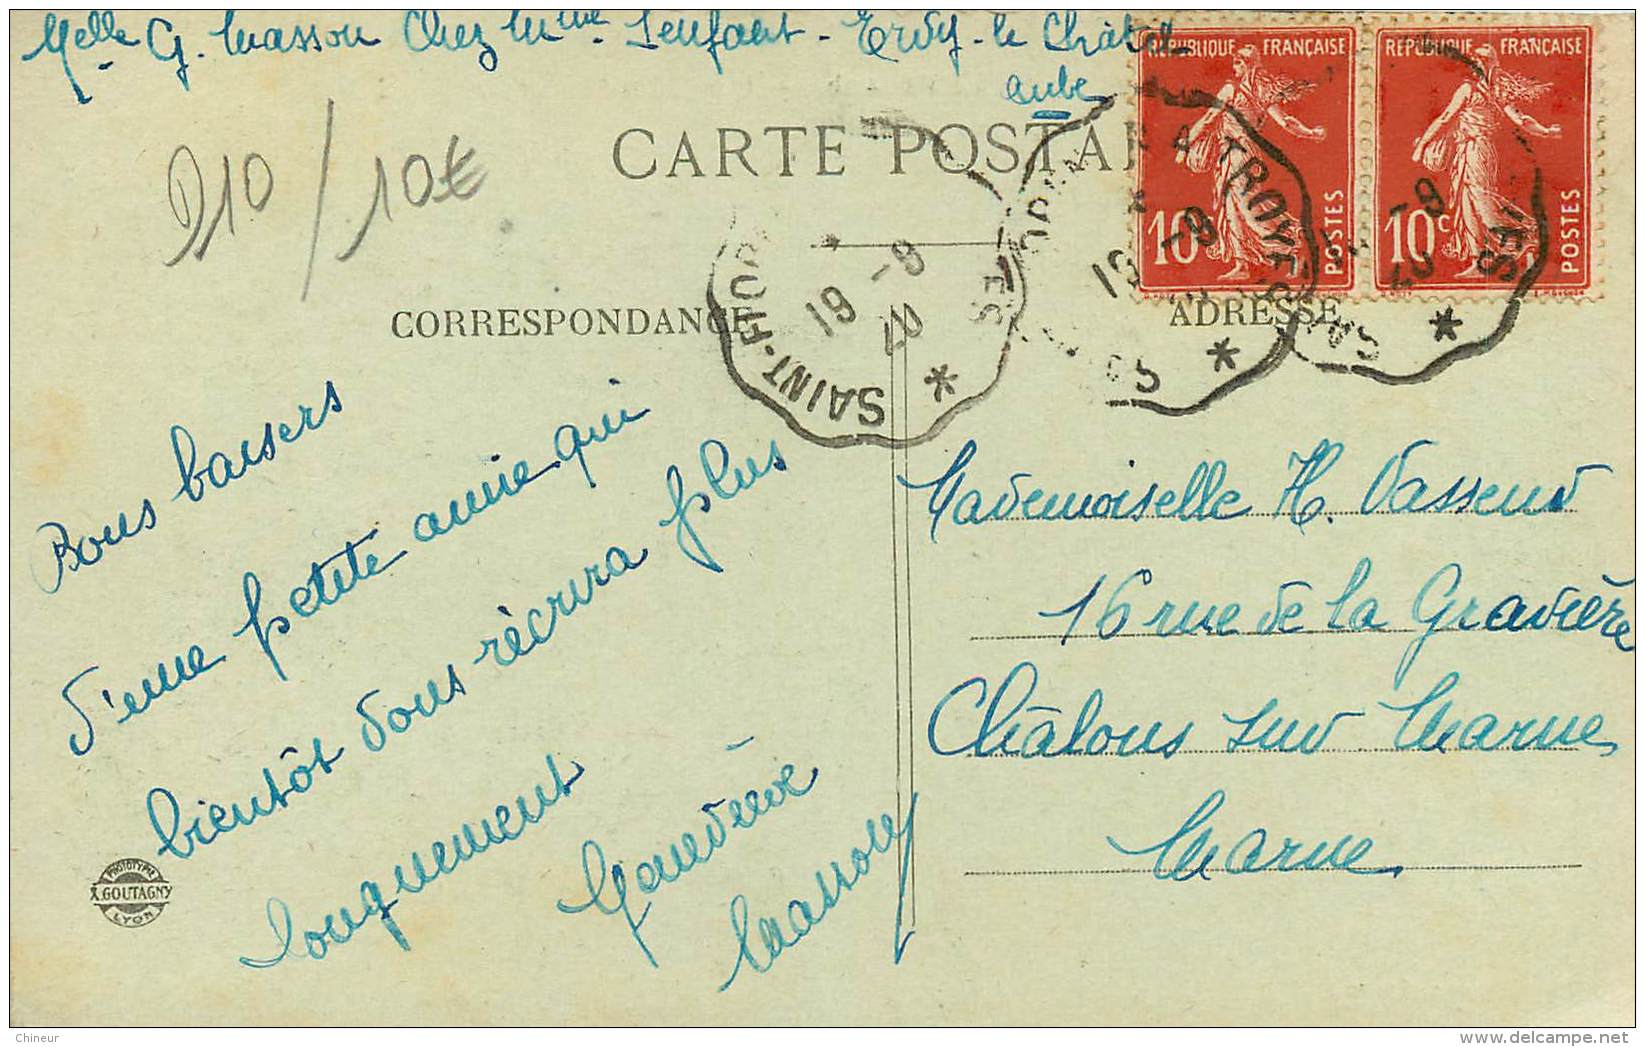 Melle G. Masson Chez Mme Lenfant - Ervy-le Châtel
Aube
RÉPUBLIQUE FRANÇAISE
10c POSTES
RÉPUBLIQUE FRANÇAISE
10c POSTES
910/10€
CARTE POSTA
SAINT-FLOR
19 -9
SAINT-FLOR A TROYES
19 -9
-9
CORRESPONDANCE
ADRESSE
Bons baisers
d'une petite amie qui
bientôt vous récrira plus
longuement
Geneviève
Masson
Mademoiselle H. Vasseur
16 rue de la Gravière
Châlons sur Marne
Marne
PHOTOTYPIE
X. GOUTAGNY
LYON
Chineur
www.delcampe.net